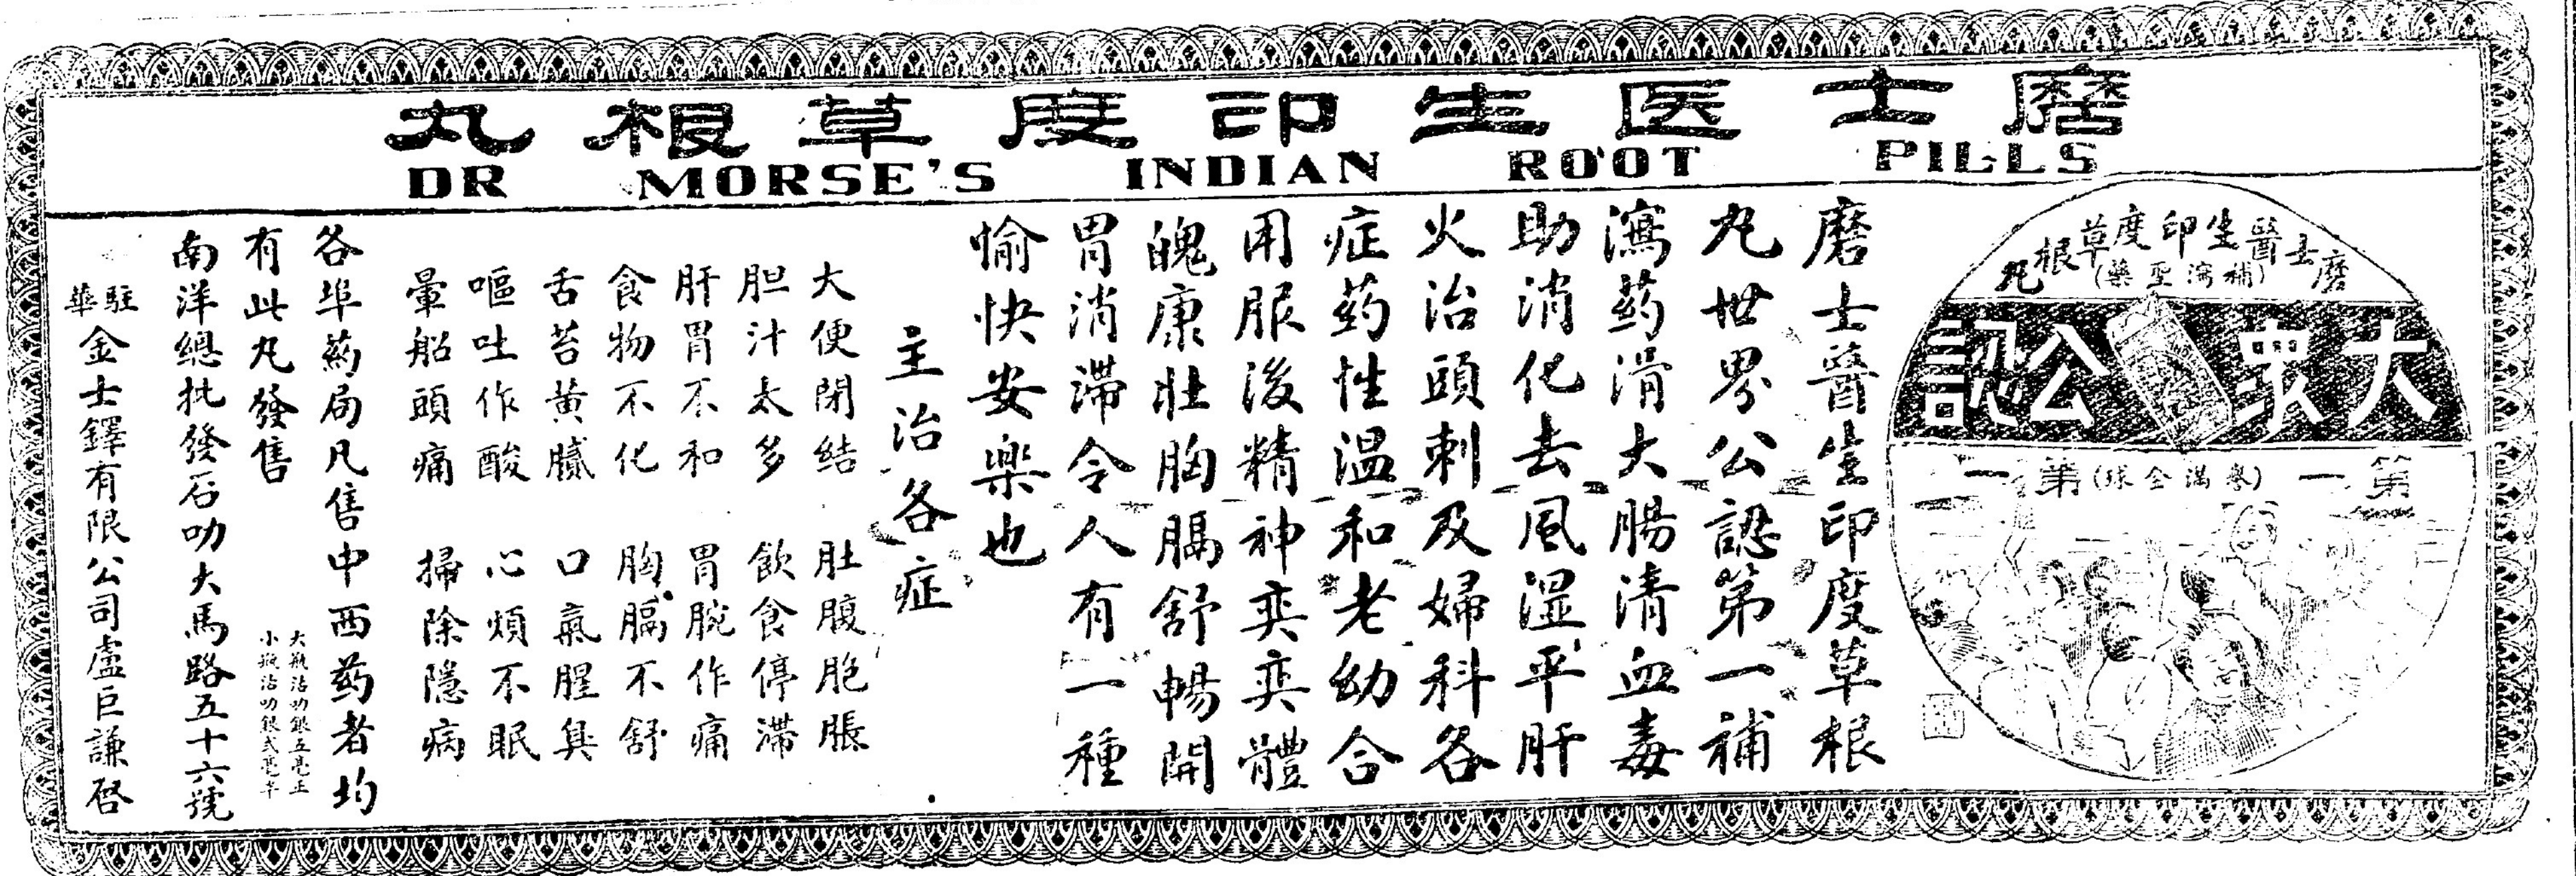 磨士医生印度草根丸
DR MORSE'S INDIAN ROOT PILLS
磨士醫生印度草根丸
(補瀉聖藥)
大眾公認
第一 (譽滿全球) 第一
磨士醫生印度草根
丸世界公認第一補
瀉药滑大腸清血毒
助消化去風濕平肝
火治頭刺及婦科各
症药性温和老幼合
用服後精神奕奕體
魄康壯胸膈舒暢開
胃消滯令人有一種
愉快安樂也
主治各症
大便閉結 肚腹胞脹
胆汁太多 飲食停滯
肝胃不和 胃脘作痛
食物不化 胸膈不舒
舌苔黄膩 口氣腥臭
嘔吐作酸 心煩不眠
暈船頭痛 掃除隱病
各埠药局凡售中西药者均
有此丸發售
大瓶沽叻銀五毫正
小瓶沽叻銀弍毫半
南洋總批發石叻大馬路五十六號
駐華金士鐸有限公司盧巨謙啓